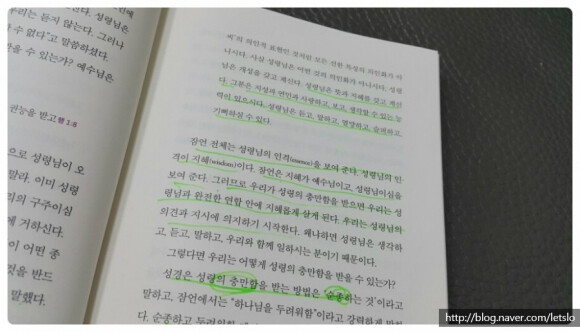 에
우리는 듣지 않는다. 그러나
수 없다” 고 말씀하셨다.
수 있는가? 예수님은
권능을 받고 행 1:8
으로 성령님이 오
말라. 이미 성령
리의 구주이심
에 거하신다.
이 어떤 종
것을 반드
말했다.
의 의인적 표현인 것처럼 모든 선한 특성의 의인화가 아
니시다. 사실 성령님은 어떤 것의 의인화가 아니시다. 성령
님은 개성을 갖고 계신다. 성령님은 뜻과 지혜를 갖고 계신
다. 그분은 지성과 연민과 사랑하고, 보고, 생각할 수 있는 능
력이 있으시다. 성령님은 듣고, 말하고, 열망하고, 슬퍼하고,
기뻐하실 수 있다.
잠언 전체는 성령님의 인격을 보여 준다. 성령님의 인
격이 지혜(wisdom)이다. 잠언은 지혜가 예수님이고, 성령님이심을
보여 준다. 그러므로 우리가 성령의 충만함을 받으면 우리는 성
령님과 완전한 연합 안에 지혜롭게 살게 된다. 우리는 성령님의
의견과 지시에 의지하기 시작한다. 왜냐하면 성령님은 생각하
고, 듣고, 말하고, 우리와 함께 일하시는 분이기 때문이다.
그렇다면 우리는 어떻게 성령의 충만함을 받을 수 있는가?
성경은 성령의 충만함을 받는 방법은 ‘순종하는 것’이라고
말하고, 잠언에서는 “하나님을 두려워함”이라고 강력하게 말
다. 순종하고 두려워할
http://blog.naver.com/letslo